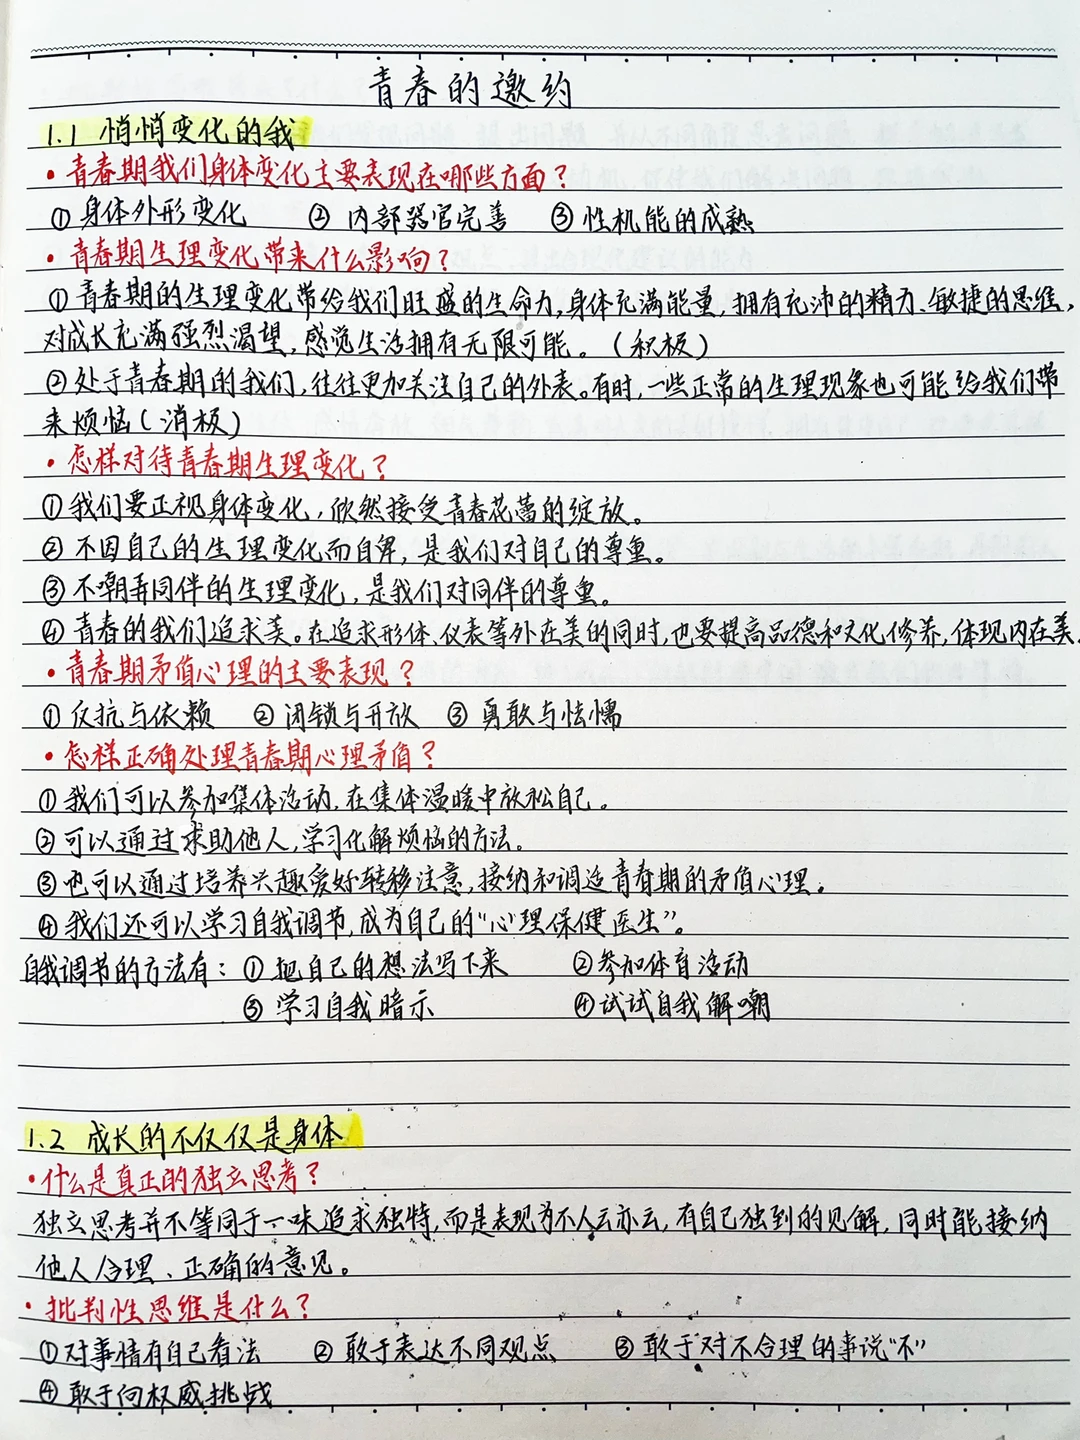 青春的邀约
1.1 悄悄变化的我
·青春期我们身体变化主要表现在哪些方面?
①身体外形变化 ②内部器官完善 ③性机能的成熟
·青春期生理变化带来什么影响?
①青春期的生理变化带给我们旺盛的生命力,身体充满能量,拥有充沛的精力、敏捷的思维,
对成长充满强烈渴望,感觉生活拥有无限可能。(积极)
②处于青春期的我们,往往更加关注自己的外表。有时,一些正常的生理现象也可能给我们带
来烦恼(消极)
·怎样对待青春期生理变化?
①我们要正视身体变化,欣然接受青春花蕾的绽放。
②不因自己的生理变化而自卑,是我们对自己的尊重。
③不嘲弄同伴的生理变化,是我们对同伴的尊重。
④青春的我们追求美。在追求形体、仪表等外在美的同时,也要提高品德和文化修养,体现内在美.
·青春期矛盾心理的主要表现?
①反抗与依赖 ②闭锁与开放 ③勇敢与怯懦
·怎样正确处理青春期心理矛盾?
①我们可以参加集体活动,在集体温暖中放松自己。
②可以通过求助他人,学习化解烦恼的方法。
③也可以通过培养兴趣爱好转移注意,接纳和调适青春期的矛盾心理。
④我们还可以学习自我调节,成为自己的“心理保健医生”。
自我调节的方法有:①把自己的想法写下来 ②参加体育活动
③学习自我暗示 ④试试自我解嘲
1.2 成长的不仅仅是身体
·什么是真正的独立思考?
独立思考并不等同于一味追求独特,而是表现为不人云亦云,有自己独到的见解,同时能接纳
他人合理、正确的意见。
·批判性思维是什么?
①对事情有自己看法 ②敢于表达不同观点 ③敢于对不合理的事说“不”
④敢于向权威挑战